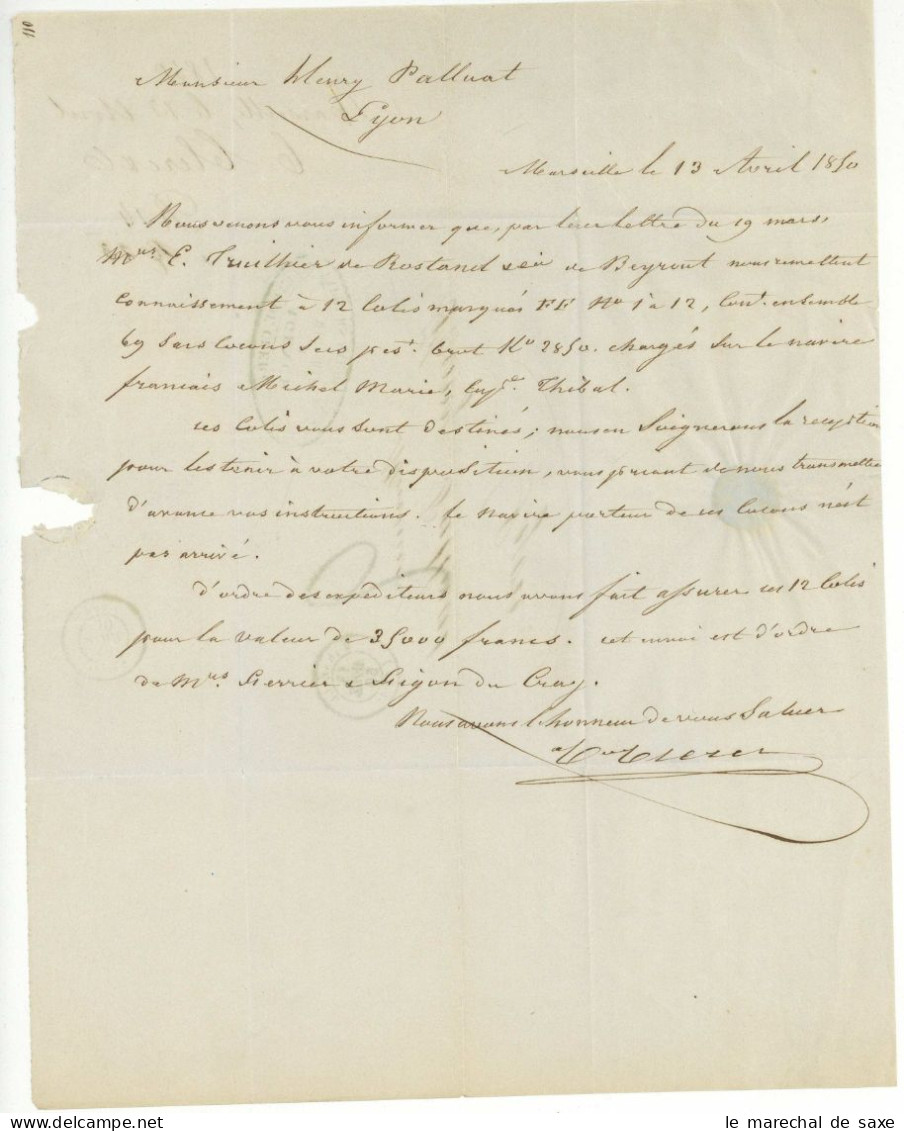 110
Monsieur Henry Palluat
Lyon
Marseille le 13 Avril 1850
Nous venons vous informer que, par leur lettre du 19 mars,
Mrs E. de Rostand de Beyrout nous remettent
connaissement à 12 Colis marqués FF No 1 à 12, Cont. ensemble
69 Sacs Cocons Secs pest. brut Ko 2850. chargés sur le navire
francais Michel Marie, Cape. Thibal.
ces Colis vous sont destinés; nous en Soignerons la reception
pour les tenir à votre disposition, vous priant de nous transmettre
d'avance vos instructions. le navire porteur de ces Cocons n'est
pas arrivé.
d'ordre des expéditeurs nous avons fait assurer ces 12 Colis
pour la valeur de 35000 francs. cet envoi est d'ordre
de Mrs. & du Cray.
Nous avons l'honneur de vous Saluer
le marechal de saxe